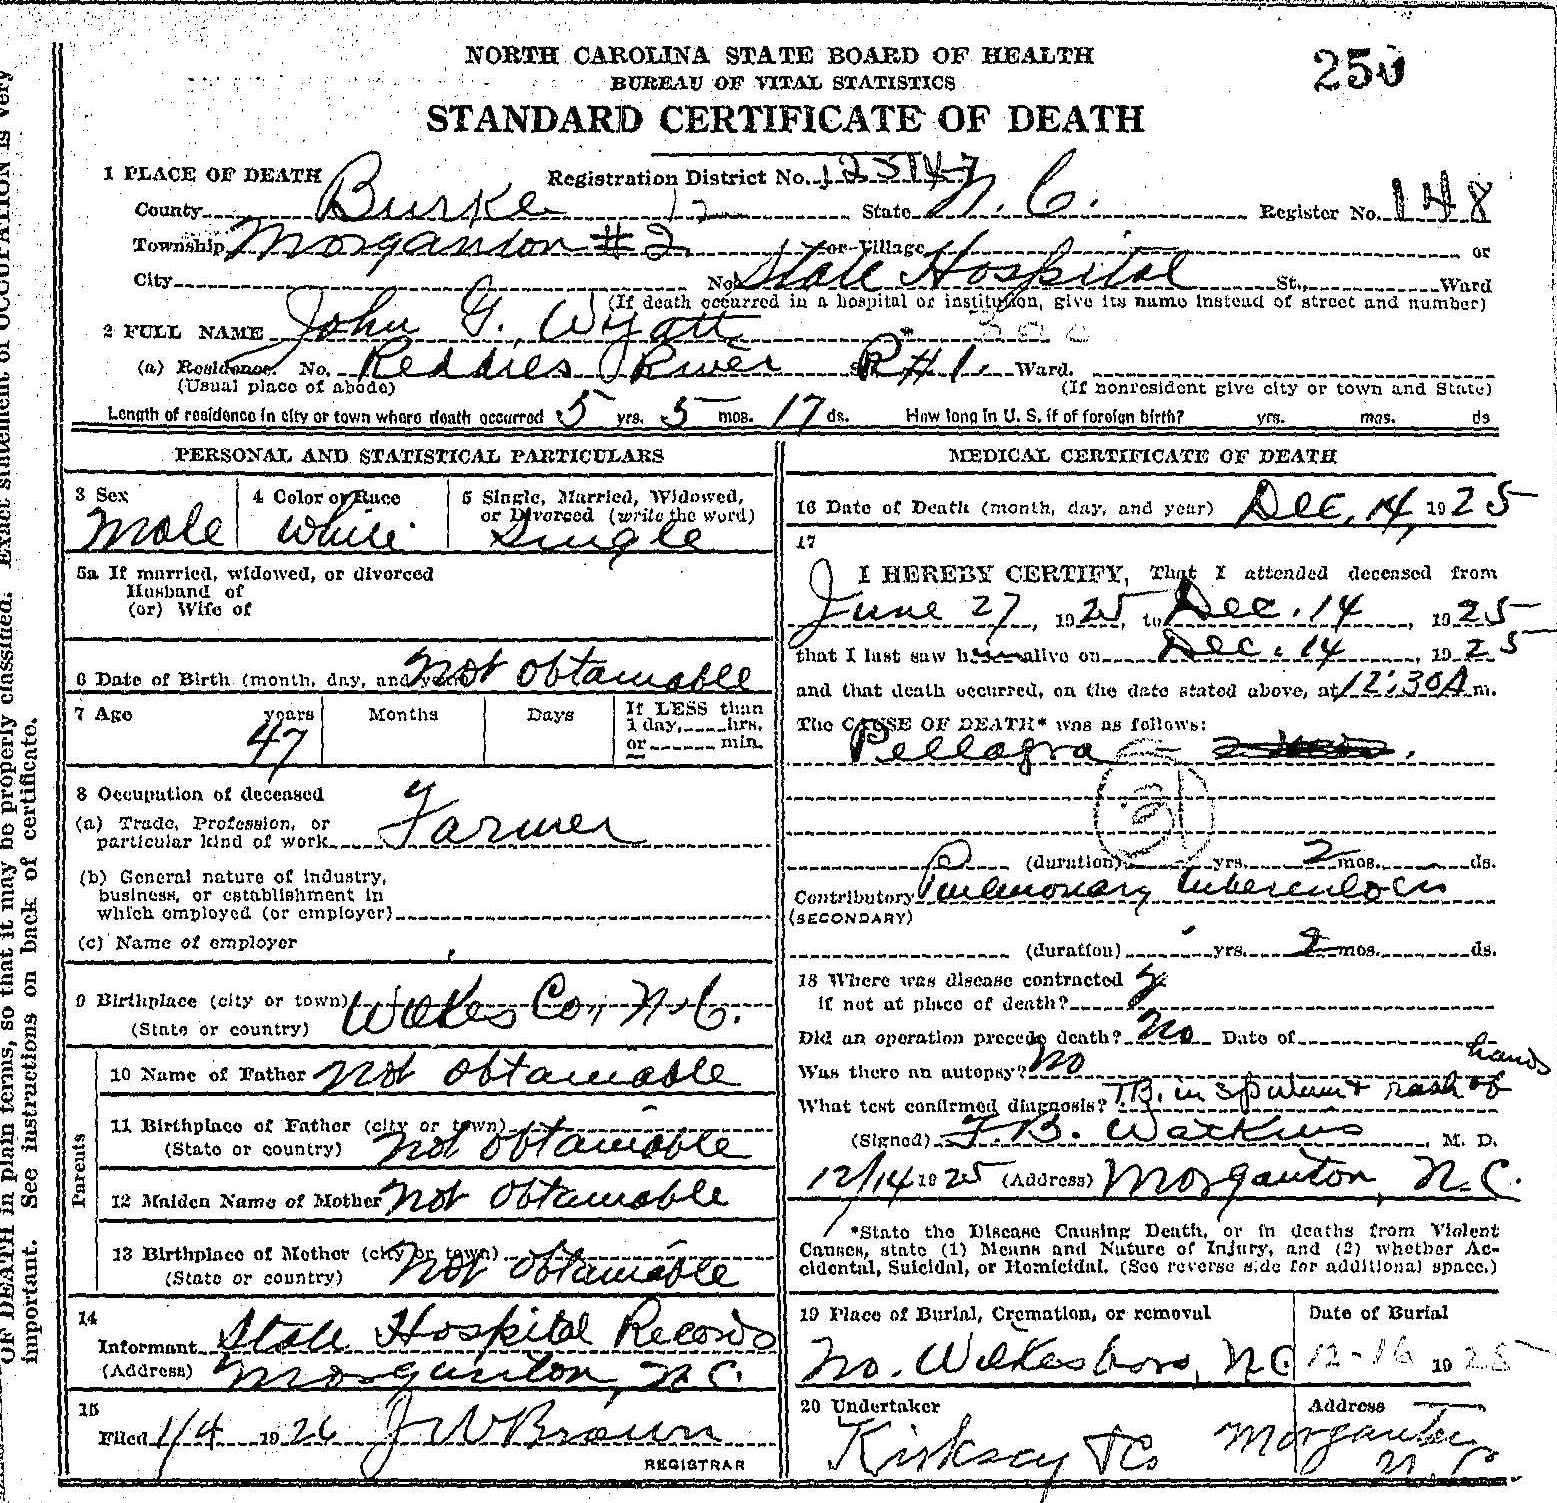 NORTH CAROLINA STATE BOARD OF HEALTH
BUREAU OF VITAL STATISTICS
STANDARD CERTIFICATE OF DEATH
250
1 PLACE OF DEATH Registration District No.
County Burke 12 State N. C. Register No. 148
Township Morganton #2 or Village or
City No. State Hospital St., Ward
(If death occurred in a hospital or institution, give its name instead of street and number)
2 FULL NAME John G. Wyatt
(a) Residence. No. Reddies River St. R#1. Ward.
(Usual place of abode) (If nonresident give city or town and State)
Length of residence in city or town where death occurred 5 yrs. 5 mos. 17 ds. How long in U. S. if of foreign birth? yrs. mos. ds
PERSONAL AND STATISTICAL PARTICULARS
3 Sex 4 Color or Race 5 Single, Married, Widowed,
or Divorced (write the word)
Male White Single
5a If married, widowed, or divorced
Husband of
(or) Wife of
6 Date of Birth (month, day, and year) Not obtainable
7 Age years Months Days If LESS than
1 day, hrs.
or min.
47
8 Occupation of deceased
(a) Trade, Profession, or
particular kind of work Farmer
(b) General nature of industry,
business, or establishment in
which employed (or employer)
(c) Name of employer
9 Birthplace (city or town) Wilkes Co, N.C.
(State or country)
Parents
10 Name of Father Not obtainable
11 Birthplace of Father (city or town)
(State or country) Not obtainable
12 Maiden Name of Mother Not obtainable
13 Birthplace of Mother (city or town)
(State or country) Not obtainable
14
Informant State Hospital Records
(Address) Morganton, N.C.
15
Filed 1/4 1926 J W Brown
REGISTRAR
MEDICAL CERTIFICATE OF DEATH
16 Date of Death (month, day, and year) Dec. 14, 1925
17
I HEREBY CERTIFY, That I attended deceased from
June 27, 1925, to Dec. 14, 1925
that I last saw him alive on Dec. 14, 1925
and that death occurred, on the date stated above, at 12:30A m.
The CAUSE OF DEATH* was as follows:
Pellagra
(duration) yrs. 2 mos. ds.
Contributory Pulmonary tuberculosis
(SECONDARY)
(duration) yrs. 2 mos. ds.
18 Where was disease contracted
if not at place of death?
Did an operation precede death? No Date of
Was there an autopsy? No
What test confirmed diagnosis? TB. in sputum + rash of hands
(Signed) F. B. Watkins, M. D.
12/14 1925 (Address) Morganton, N.C.
*State the Disease Causing Death, or in deaths from Violent
Causes, state (1) Means and Nature of Injury, and (2) whether Ac-
cidental, Suicidal, or Homicidal. (See reverse side for additional space.)
19 Place of Burial, Cremation, or removal Date of Burial
No. Wilkesboro, N.C. 12-16 1925
20 Undertaker Address
Kirksey & Co Morganton
N.C.
OF DEATH in plain terms, so that it may be properly classified. Exact statement of OCCUPATION is very
important. See instructions on back of certificate.